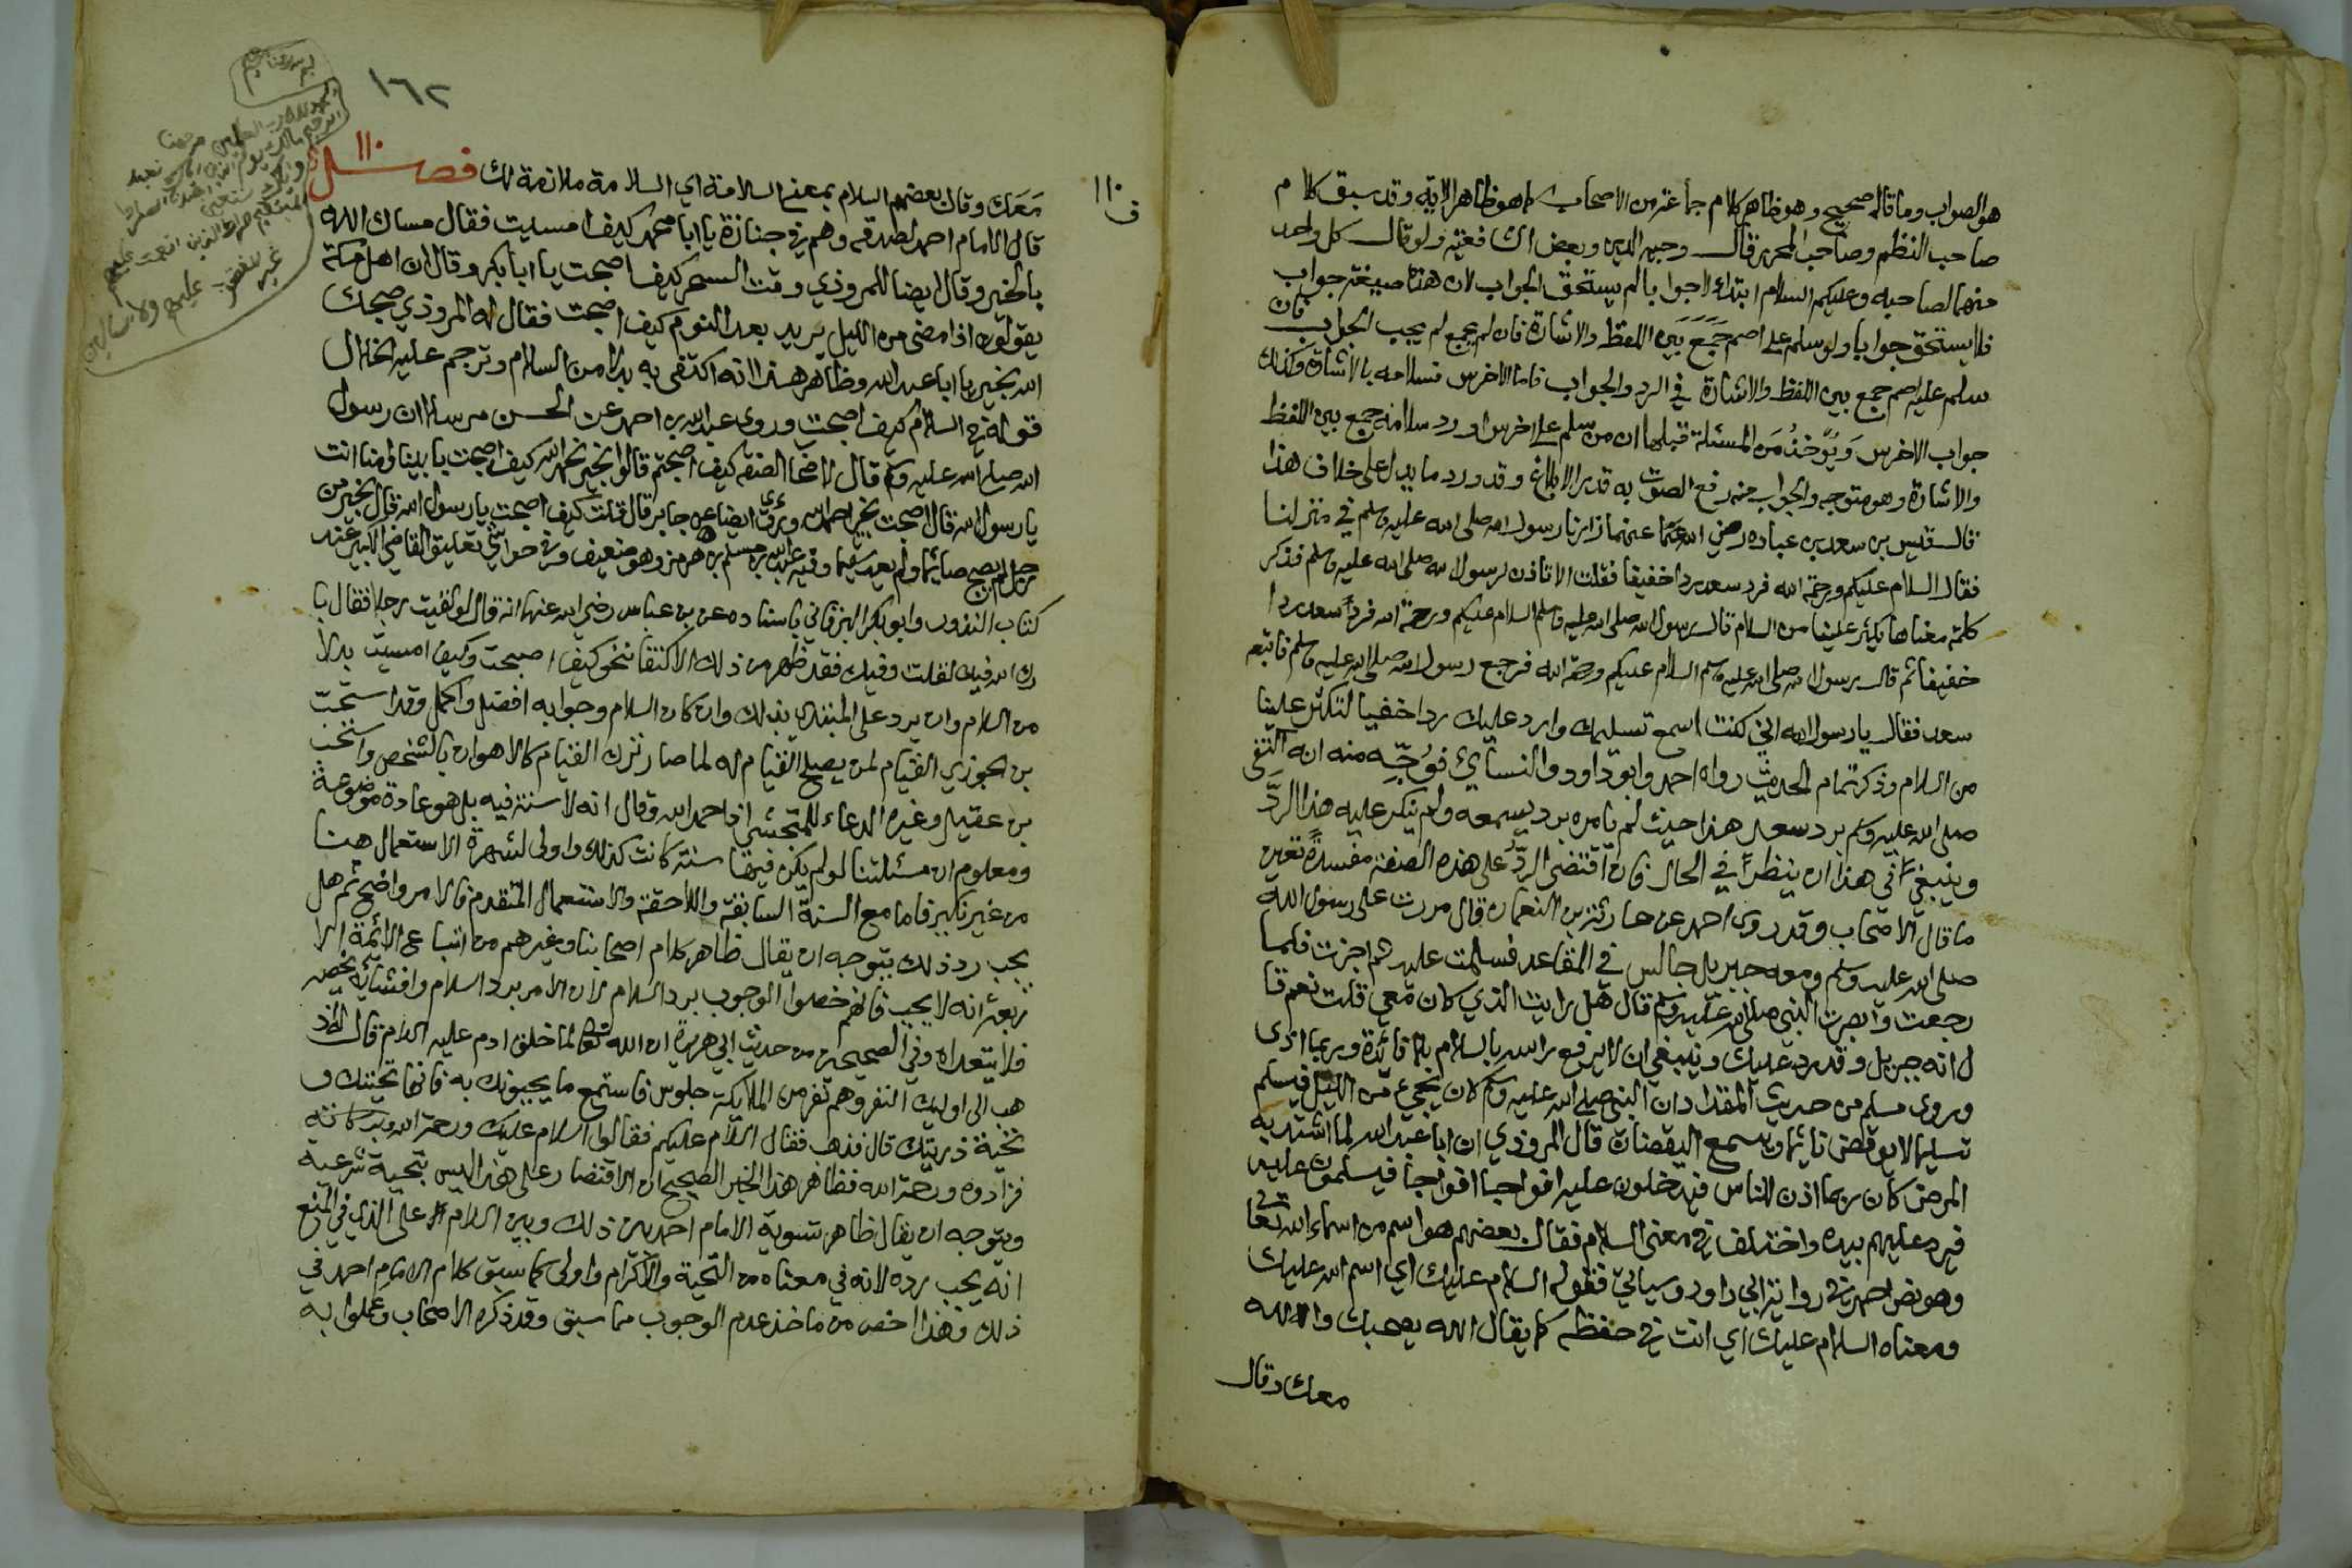 هو الصواب وما قاله صحيح وهو ظاهر كلام جماعة من الاصحاب كما هو ظاهر الاية وقد سبق كلام
صاحب النظم وصاحب المحرر قال وجيه الدين وبعض الشافعية ولو قال كل واحد
منهما لصاحبه وعليكم السلام ابتداء لا جوابا لم يستحق الجواب لان هذه صيغة جواب
فلا يستحق جوابا ولو سلم على اصم جمع بين اللفظ والاشارة فان لم يجمع لم يجب الجواب فان
سلم عليه اصم جمع بين اللفظ والاشارة في الرد والجواب فاما الاخرس فسلامه بالاشارة وكذلك
جواب الاخرس ويؤخذ من المسئلة قبلها ان من سلم على اخرس او رد سلامه جمع بين اللفظ
والاشارة وهو متوجه والجواب منه رفع الصوت به قدر الابلاغ وقد ورد ما يدل على خلاف هذا
قال قيس بن سعد بن عباده رضي الله عنهما زارنا رسول الله صلى الله عليه وسلم في منزلنا
فقال السلام عليكم ورحمة الله فرد سعد ردا خفيفا فقلت الا تاذن لرسول الله صلى الله عليه وسلم فذكر
كلمة معناها يكثر علينا من السلام قال رسول الله صلى الله عليه وسلم السلام عليكم ورحمة الله فرد سعد ردا
خفيفا ثم قال رسول الله صلى الله عليه وسلم السلام عليكم ورحمة الله فرجع رسول الله صلى الله عليه وسلم فاتبعه
سعد فقال يا رسول الله اني كنت اسمع تسليمك وارد عليك ردا خفيا لتكثر علينا
من السلام وذكر تمام الحديث رواه احمد وابو داود والنسائي فوجه منه انه اكتفى
صلى الله عليه وسلم برد سعد هذا حيث لم يامره برد يسمعه ولم ينكر عليه هذا الرد
وينبغي في هذا ان ينظر في الحال فان اقتضى الرد على هذه الصفة مفسدة تعين
ما قال الاصحاب وقد روى احمد عن حارثة بن النعمان قال مررت على رسول الله
صلى الله عليه وسلم ومعه جبريل جالس في المقاعد فسلمت عليه ثم اجزت فلما
رجعت وابصرت النبي صلى الله عليه وسلم قال هل رايت الذي كان معي قلت نعم قا
ل انه جبريل وقد رد عليك وينبغي ان لا يرفع راسه بالسلام بلا فائدة وربما اذى
وروى مسلم من حديث المقداد ان النبي صلى الله عليه وسلم كان يجيء من الليل فيسلم
تسليما لا يوقض نائما ويسمع اليقضان قال المروذي ان ابا عبد الله لما اشتد به
المرض كان ربما اذن للناس فيدخلون عليه افواجا افواجا فيسلمون عليه
فيرد عليهم بيده واختلف في معنى السلام فقال بعضهم هو اسم من اسماء الله تعالى
وهو نص احمد في رواية ابي داود وسياتي فقوله السلام عليك اي اسم الله عليك
ومعناه السلام عليك اي انت في حفظه كما يقال الله يصحبك والله
معك وقال
١١٠
ف
١٦٢
معك وقال بعضهم السلام بمعنى السلامة اي السلامة ملازمة لك فصل ١١٠
قال الامام احمد لصدقه وهم في جنازة يا ابا محمد كيف امسيت فقال مساك الله
بالخير وقال ايضا للمروذي وقت السحر كيف اصبحت يا ابا بكر وقال ان اهل مكة
يقولون اذا مضى من الليل يريد بعد النوم كيف اصبحت فقال له المروذي صبحك
الله بخير يا ابا عبد الله وظاهر هذا انه اكتفى به بدلا من السلام وترجم عليه الخلال
قوله في السلام كيف اصبحت وروى عبد الله بن احمد عن الحسن مرسلا ان رسول
الله صلى الله عليه وسلم قال لاصحاب الصفه كيف اصبحتم قالوا بخير نحمد الله كيف اصبحت بابينا وامنا انت
يا رسول الله قال اصبحت بخير احمد الله وروي ايضا عن جابر قال قلت كيف اصبحت يا رسول الله قال بخير من
رجل لم يصبح صائما ولم يعد سقيما وفيه عبد الله بن مسلم بن هرمز وهو ضعيف وفي حواشي تعليق القاضي الكبير عند
كتاب النذور وابو بكر البرقاني باسناده عن بن عباس رضي الله عنهما انه قال لو لقيت رجلا فقال با
رك الله فيك لقلت وفيك فقد ظهر من ذلك الاكتفا نحو كيف اصبحت وكيف امسيت بدلا
من السلام وان يرد على المبتدي بذلك وان كان السلام وجوابه افضل واكمل وقد استحب
بن الجوزي القيام لمن يصلح القيام له لما صار ترك القيام كالاهوان بالشخص واستحب
بن عقيل وغيره الدعاء للمتجشي اذا حمد الله وقال انه لا سنة فيه بل هو عادة موضوعة
ومعلوم ان مسئلتنا لو لم يكن فيها سنة كانت كذلك واولى لشهرة الاستعمال هنا
من غير نكير فاما مع السنة السابقة واللاحقة والاستعمال المتقدم فالامر واضح ثم هل
يجب رد ذلك يتوجه ان يقال ظاهر كلام اصحابنا وغيرهم من اتباع الائمة الا
ربعة انه لا يجب فانهم خصوا الوجوب برد السلام لان الامر برد السلام وافشائه يخصه
فلا يتعداه وفي الصحيحين من حديث ابي هريرة ان الله تعالى لما خلق ادم عليه السلام قال اذ
هب الى اوليك النفر وهم نفر من الملايكة جلوس فاستمع ما يجيبونك به فانها تحيتك و
تحية ذريتك قال فذهب فقال السلام عليكم فقالوا السلام عليك ورحمة الله وبركاته
فزادوه ورحمة الله فظاهر هذا الخبر الصحيح ان الاقتصار على هذا ليس بتحية شرعية
ويتوجه ان يقال ظاهر تسوية الامام احمد بين ذلك وبين السلام على الذي في المنع
انه يجب رده لانه في معناه من التحية والاكرام واولى كما سبق كلام الامام احمد في
ذلك وهذا اخص من ماخذ عدم الوجوب مما سبق وقد ذكره الاصحاب وعملوا به
غير المغضوب عليهم ولا الضالين